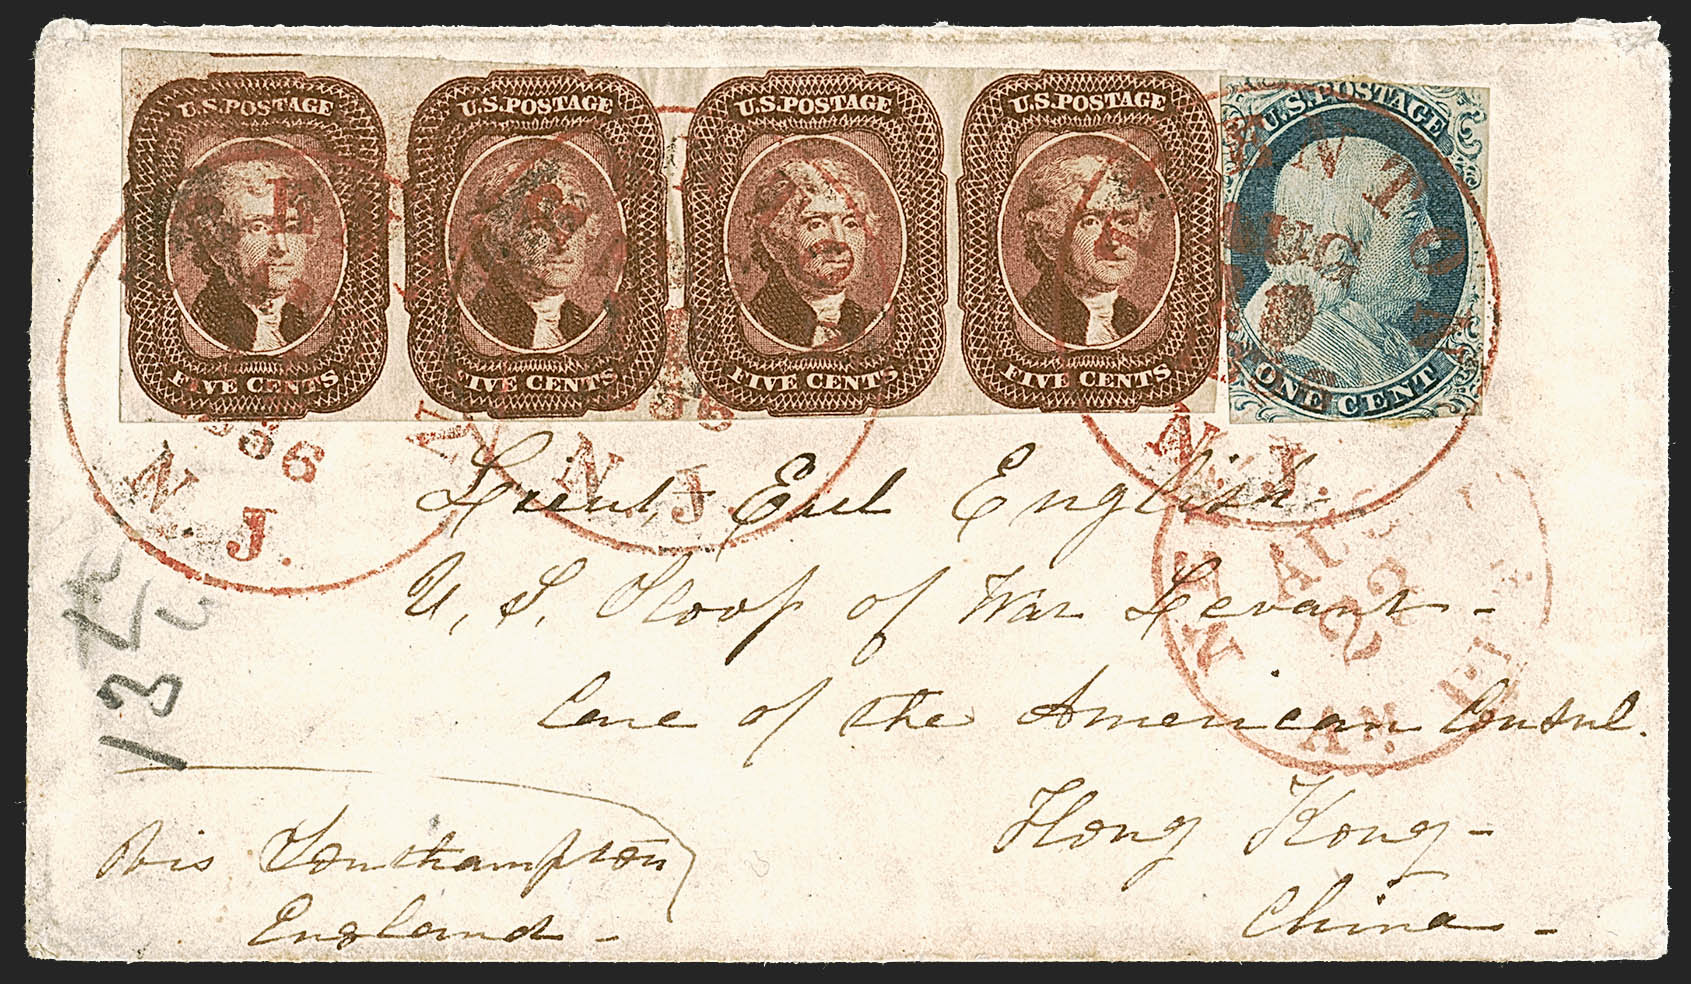 U.S. POSTAGE
FIVE CENTS
U.S. POSTAGE
FIVE CENTS
U.S. POSTAGE
FIVE CENTS
U.S. POSTAGE
FIVE CENTS
U.S. POSTAGE
ONE CENT
TRENTON
DEC
N. J.
1856
N. J.
N. J.
Lieut Earl English
U, S, Sloop of War Levant -
Care of the American Consul.
Hong Kong -
China -
Via Southampton
England -
NEW
22